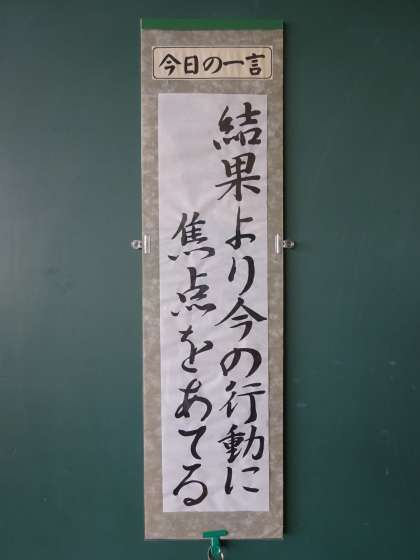 今日の一言
結果より今の行動に
焦点をあてる